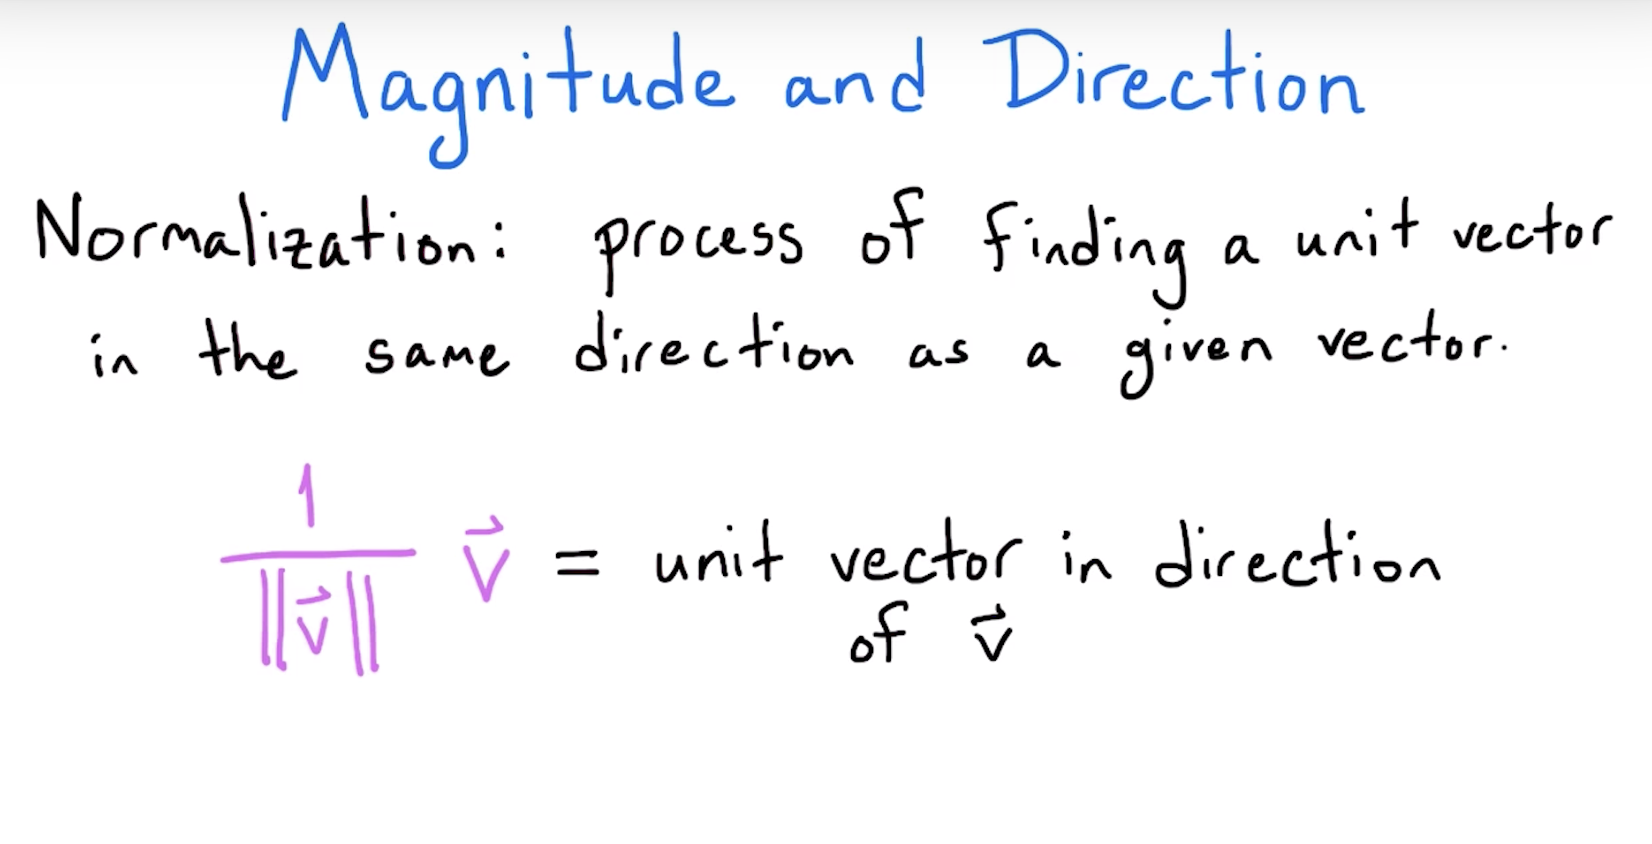 Magnitude and Direction
Normalization: process of finding a unit vector
in the same direction as a given vector.
1/‖v⃗‖ v⃗ = unit vector in direction
of v⃗